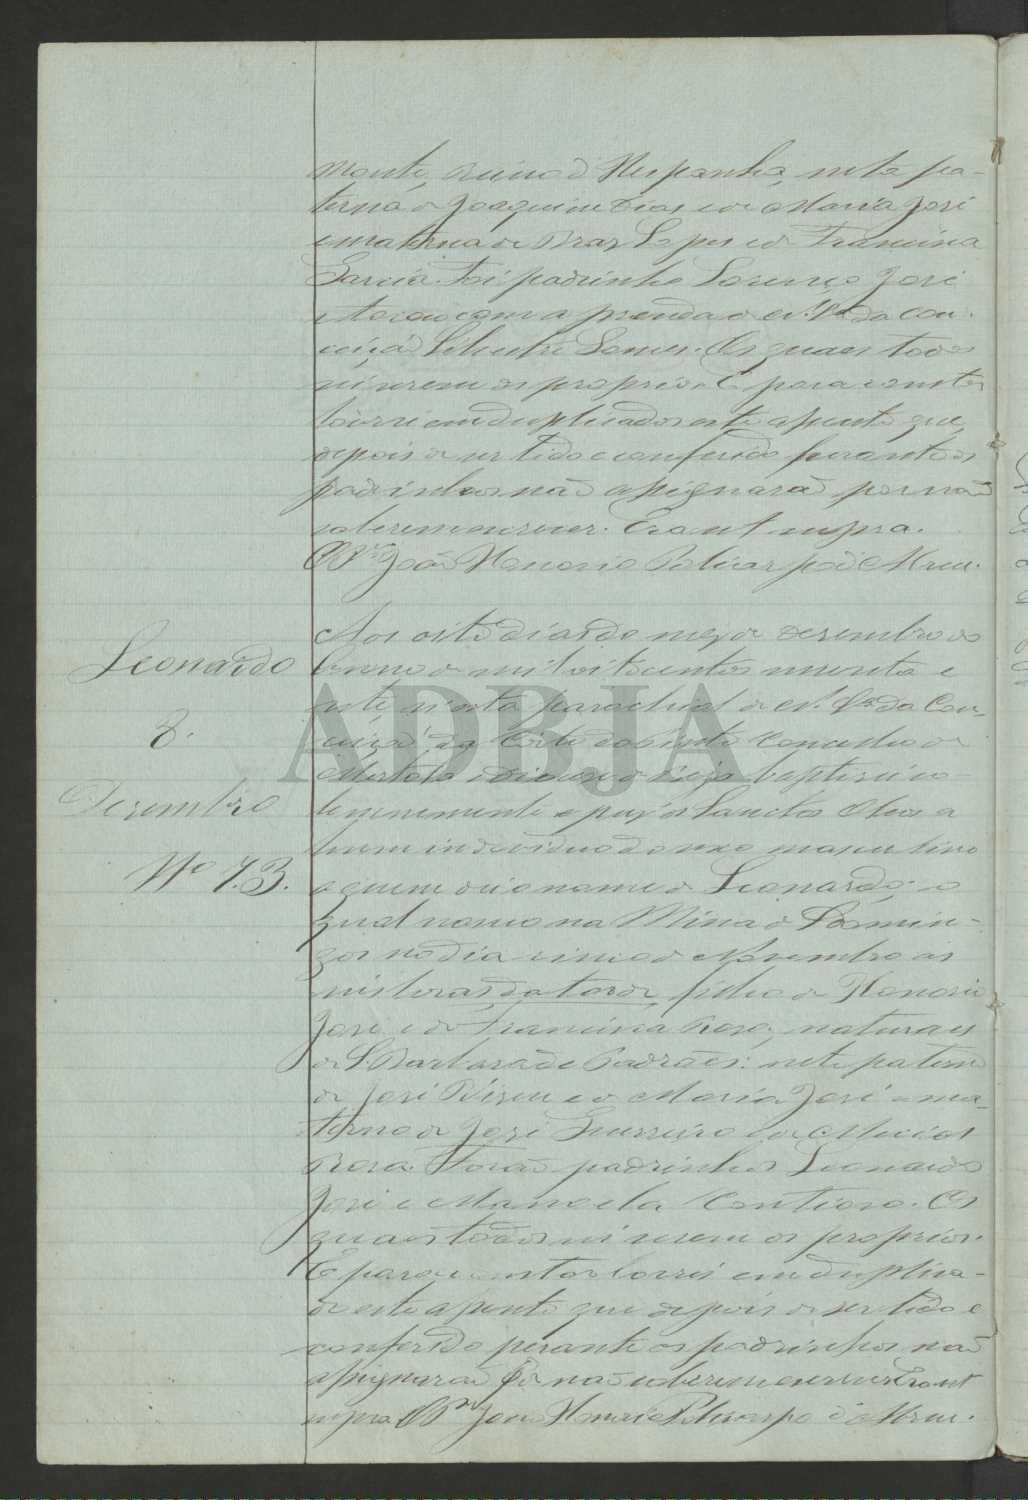 monte, reino d'Hespanha, neta pa-
terna de Joaquim Dias e de Maria José
e materna de Braz Lopes e de Francisca
Garcia. Foi padrinho Lourenço José
e tocou com a prenda de N. Sra. da Con-
ceição Silvestre Gomes. Os quaes todos
sei serem os proprios. E para constar
lavrei em duplicado este assento que,
depois de ser lido e conferido perante os
padrinhos não assignarão por não
saberem escrever. Era ut supra.
O Pr. João Honorio Policarpo d'Abreu.
Leonardo
8.
Dezembro
Nº 73.
Aos oito dias do mez de Dezembro do
anno de mil oitocentos noventa e
sete, n'esta parochial de N. Sra. da Con-
ceição da Corte do Pinto Concelho de
Mertola e diocese de Beja baptizei so-
lemnemente e puz os Sanctos Oleos a
hum individuo do sexo masculino
a quem dei o nome de Leonardo: o
qual nasceu na Mina de S. Domin-
gos no dia cinco de Novembro ás
seis horas da tarde, filho de Honorio
José e de Francisca Rosa, naturaes
de S. Barbara de Padrões: neto paterno
de José e de Maria José e ma-
terno de José Guerreiro e de
Rosa. Forão padrinhos Leonardo
José e Manoela. Os
quaes todos sei serem os proprios.
E para constar lavrei em duplica-
do este assento que depois de ser lido e
conferido perante os padrinhos não
assignarão por não saberem escrever. Era ut
supra. O Pr. João Honorio Policarpo d'Abreu.
ADBJA